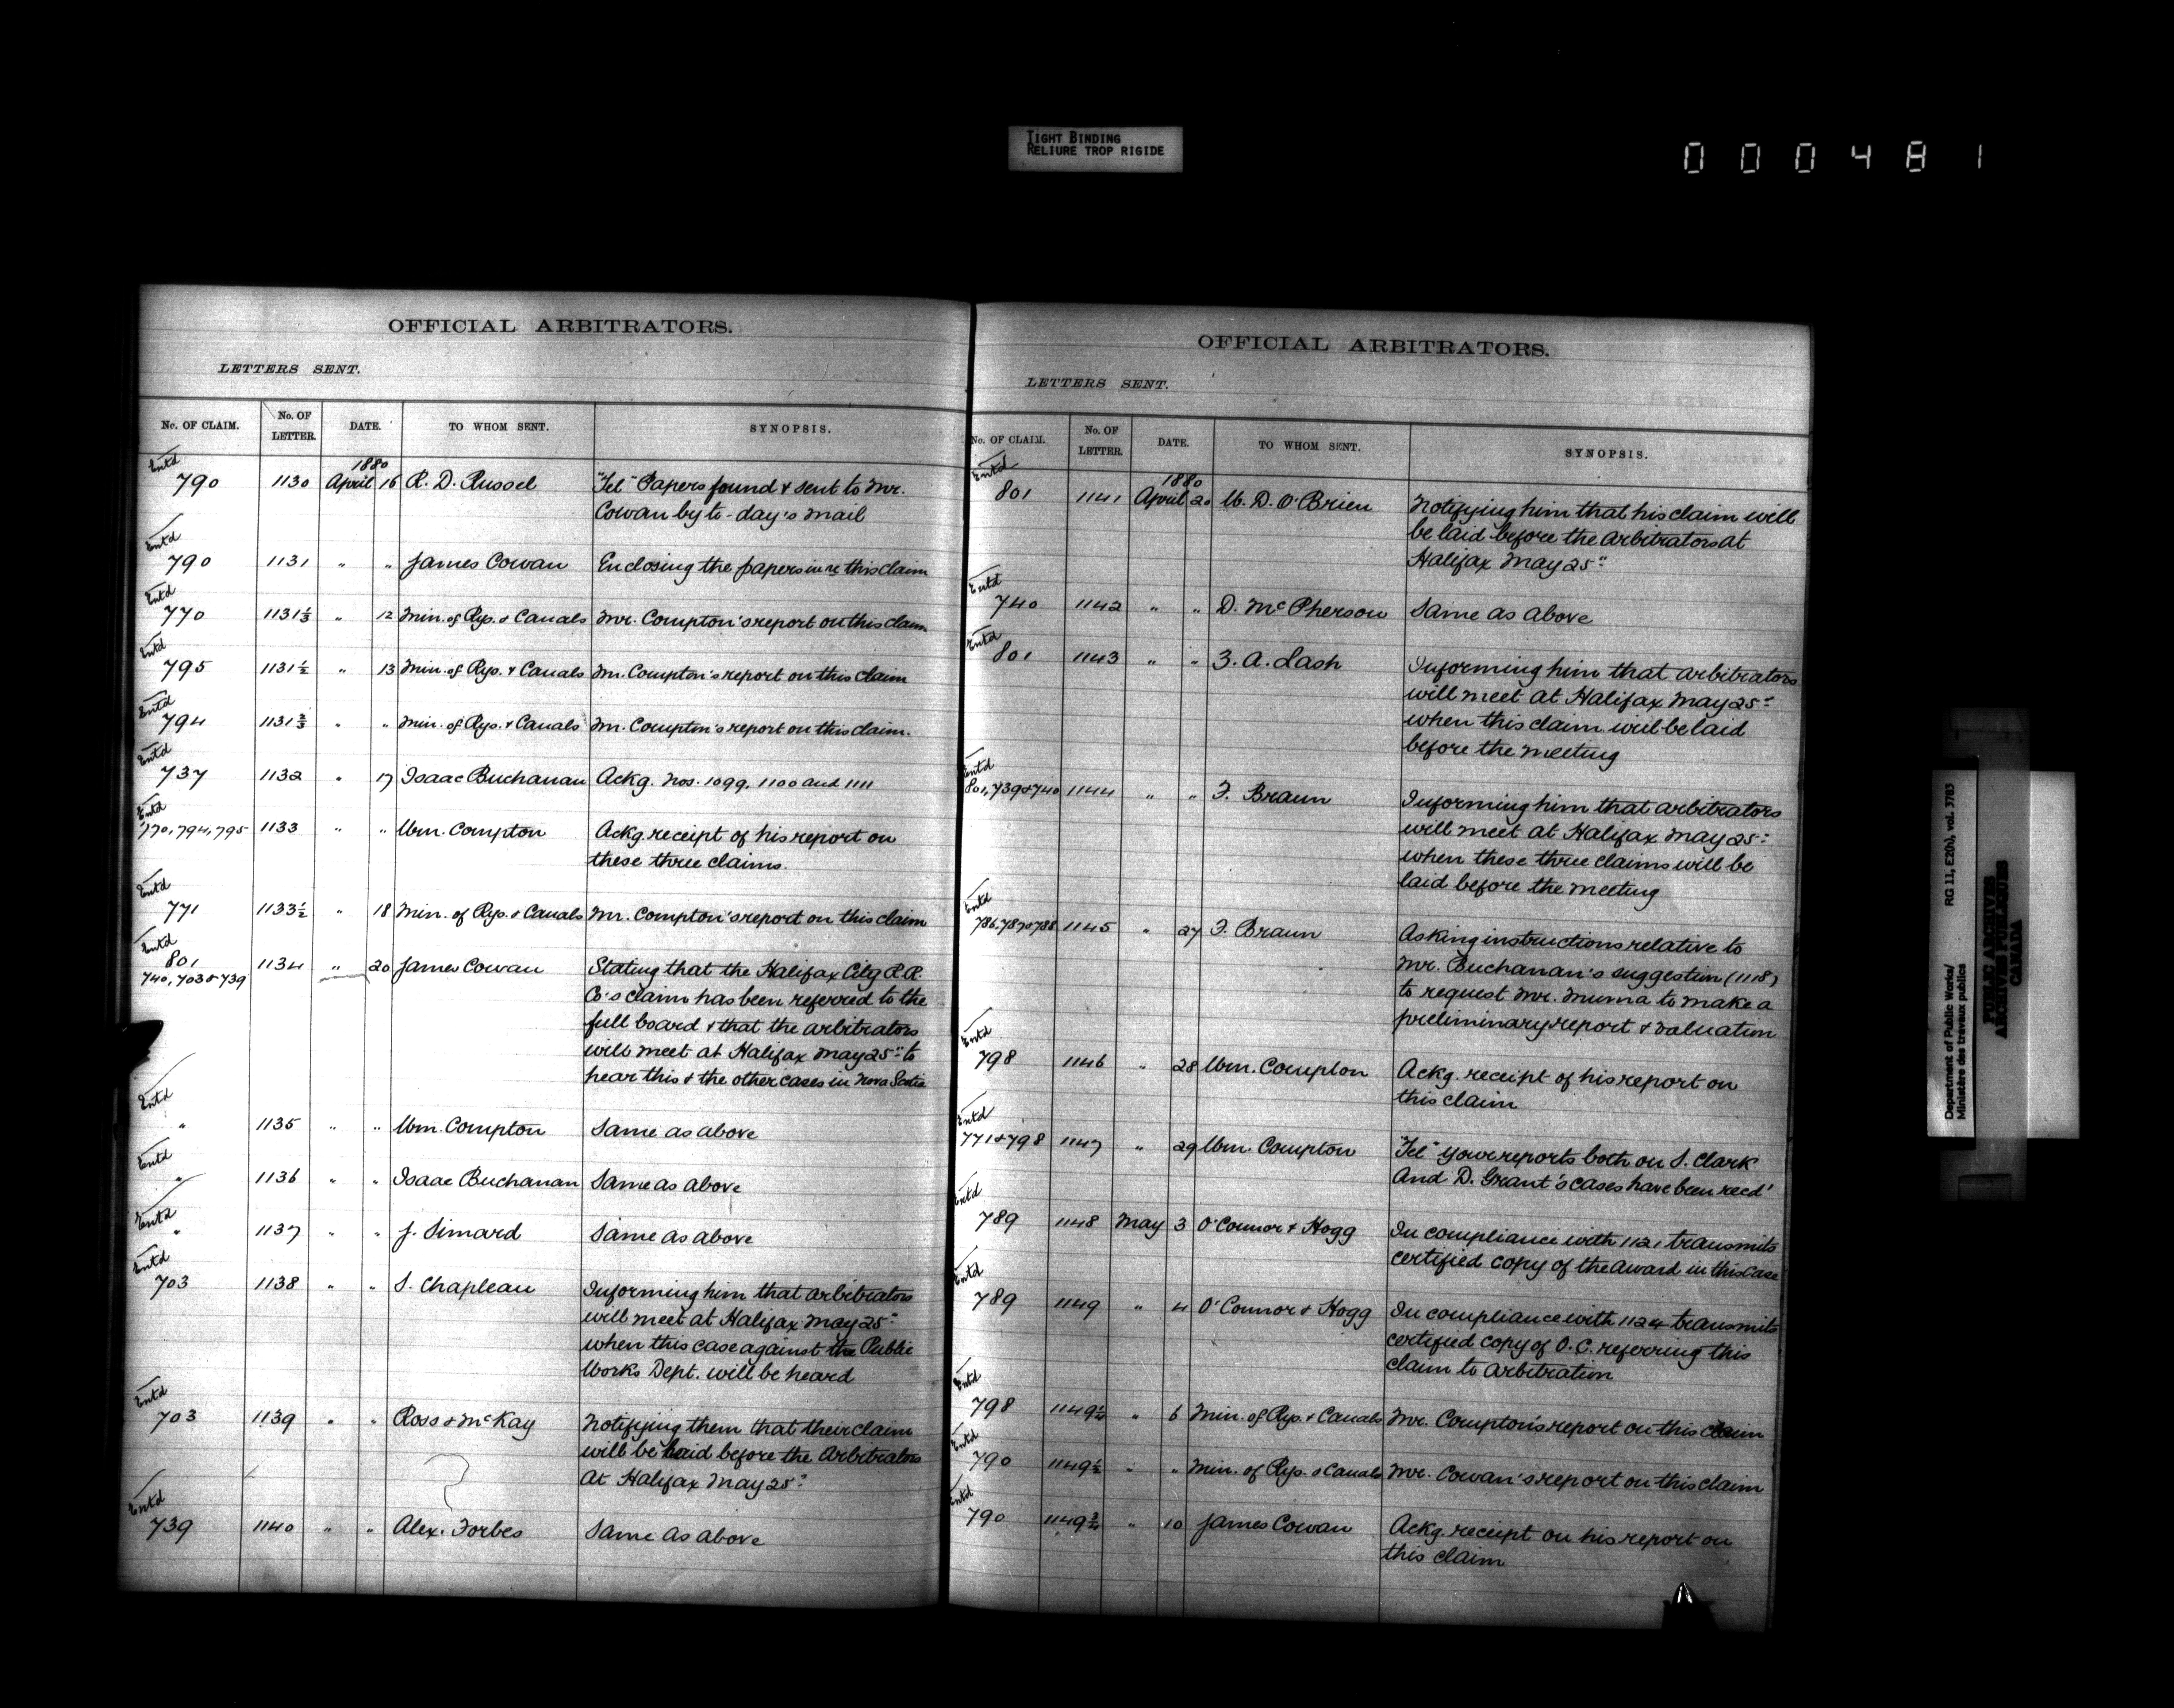 TIGHT BINDING
RELIURE TROP RIGIDE
000481
OFFICIAL ARBITRATORS.
LETTERS SENT.
No. OF CLAIM. No. OF LETTER. DATE. TO WHOM SENT. SYNOPSIS.
1880
Entd
790 1130 April 16 R. D. Russel "Tel" Papers found & sent to Mr.
Cowan by to-day's mail
Entd
790 1131 " " James Cowan Enclosing the papers in re this claim
Entd
770 1131 1/3 " 12 Min. of Rys. & Canals Mr. Compton's report on this claim
Entd
795 1131 1/2 " 13 Min. of Rys. & Canals Mr. Compton's report on this claim
Entd
794 1131 2/3 " " Min. of Rys. & Canals Mr. Compton's report on this claim.
Entd
737 1132 " 17 Isaac Buchanan Ackg. Nos. 1099, 1100 and 1111
Entd
770, 794, 795 1133 " " Wm. Compton Ackg. receipt of his report on
these three claims.
Entd
771 1133 1/2 " 18 Min. of Rys. & Canals Mr. Compton's report on this claim
Entd
801
740, 703 & 739 1134 " 20 James Cowan Stating that the Halifax City R.R.
Co's claim has been referred to the
full board & that the arbitrators
will meet at Halifax May 25" to
hear this & the other cases in Nova Scotia
Entd
" 1135 " " Wm. Compton Same as above
Entd
" 1136 " " Isaac Buchanan Same as above
Entd
" 1137 " " J. Simard Same as above
Entd
703 1138 " " S. Chapleau Informing him that arbitrators
will meet at Halifax May 25"
when this case against the Public
Works Dept. will be heard
Entd
703 1139 " " Ross & McKay Notifying them that their claim
will be laid before the Arbitrators
at Halifax May 25"
Entd
739 1140 " " Alex. Forbes Same as above
OFFICIAL ARBITRATORS.
LETTERS SENT.
No. OF CLAIM. No. OF LETTER. DATE. TO WHOM SENT. SYNOPSIS.
1880
Entd
801 1141 April 20 W. D. O'Brien Notifying him that his claim will
be laid before the arbitrators at
Halifax May 25"
Entd
740 1142 " " D. McPherson Same as above
Entd
801 1143 " " Z. A. Lash Informing him that arbitrators
will meet at Halifax May 25"
when this claim will be laid
before the meeting
Entd
801, 739 & 740 1144 " " F. Braun Informing him that arbitrators
will meet at Halifax May 25"
when these three claims will be
laid before the meeting
Entd
786, 787 & 788 1145 " 27 F. Braun Asking instructions relative to
Mr. Buchanan's suggestion (1118)
to request Mr. Muma to make a
preliminary report & valuation
Entd
798 1146 " 28 Wm. Compton Ackg. receipt of his report on
this claim
Entd
771 & 798 1147 " 29 Wm. Compton "Tel" Your reports both on S. Clark
and D. Grant's cases have been recd'
Entd
789 1148 May 3 O'Connor & Hogg In compliance with 1121 transmits
certified copy of the Award in this case
Entd
789 1149 " 4 O'Connor & Hogg In compliance with 1124 transmits
certified copy of O.C. referring this
claim to arbitration
Entd
798 1149 1/4 " 6 Min. of Rys. & Canals Mr. Compton's report on this claim
Entd
790 1149 1/2 " " Min. of Rys. & Canals Mr. Cowan's report on this claim
Entd
790 1149 3/4 " 10 James Cowan Ackg. receipt on his report on
this claim
Department of Public Works/ RG 11, E20(), vol. 3783
Ministère des travaux publics
PUBLIC ARCHIVES
ARCHIVES PUBLIQUES
CANADA